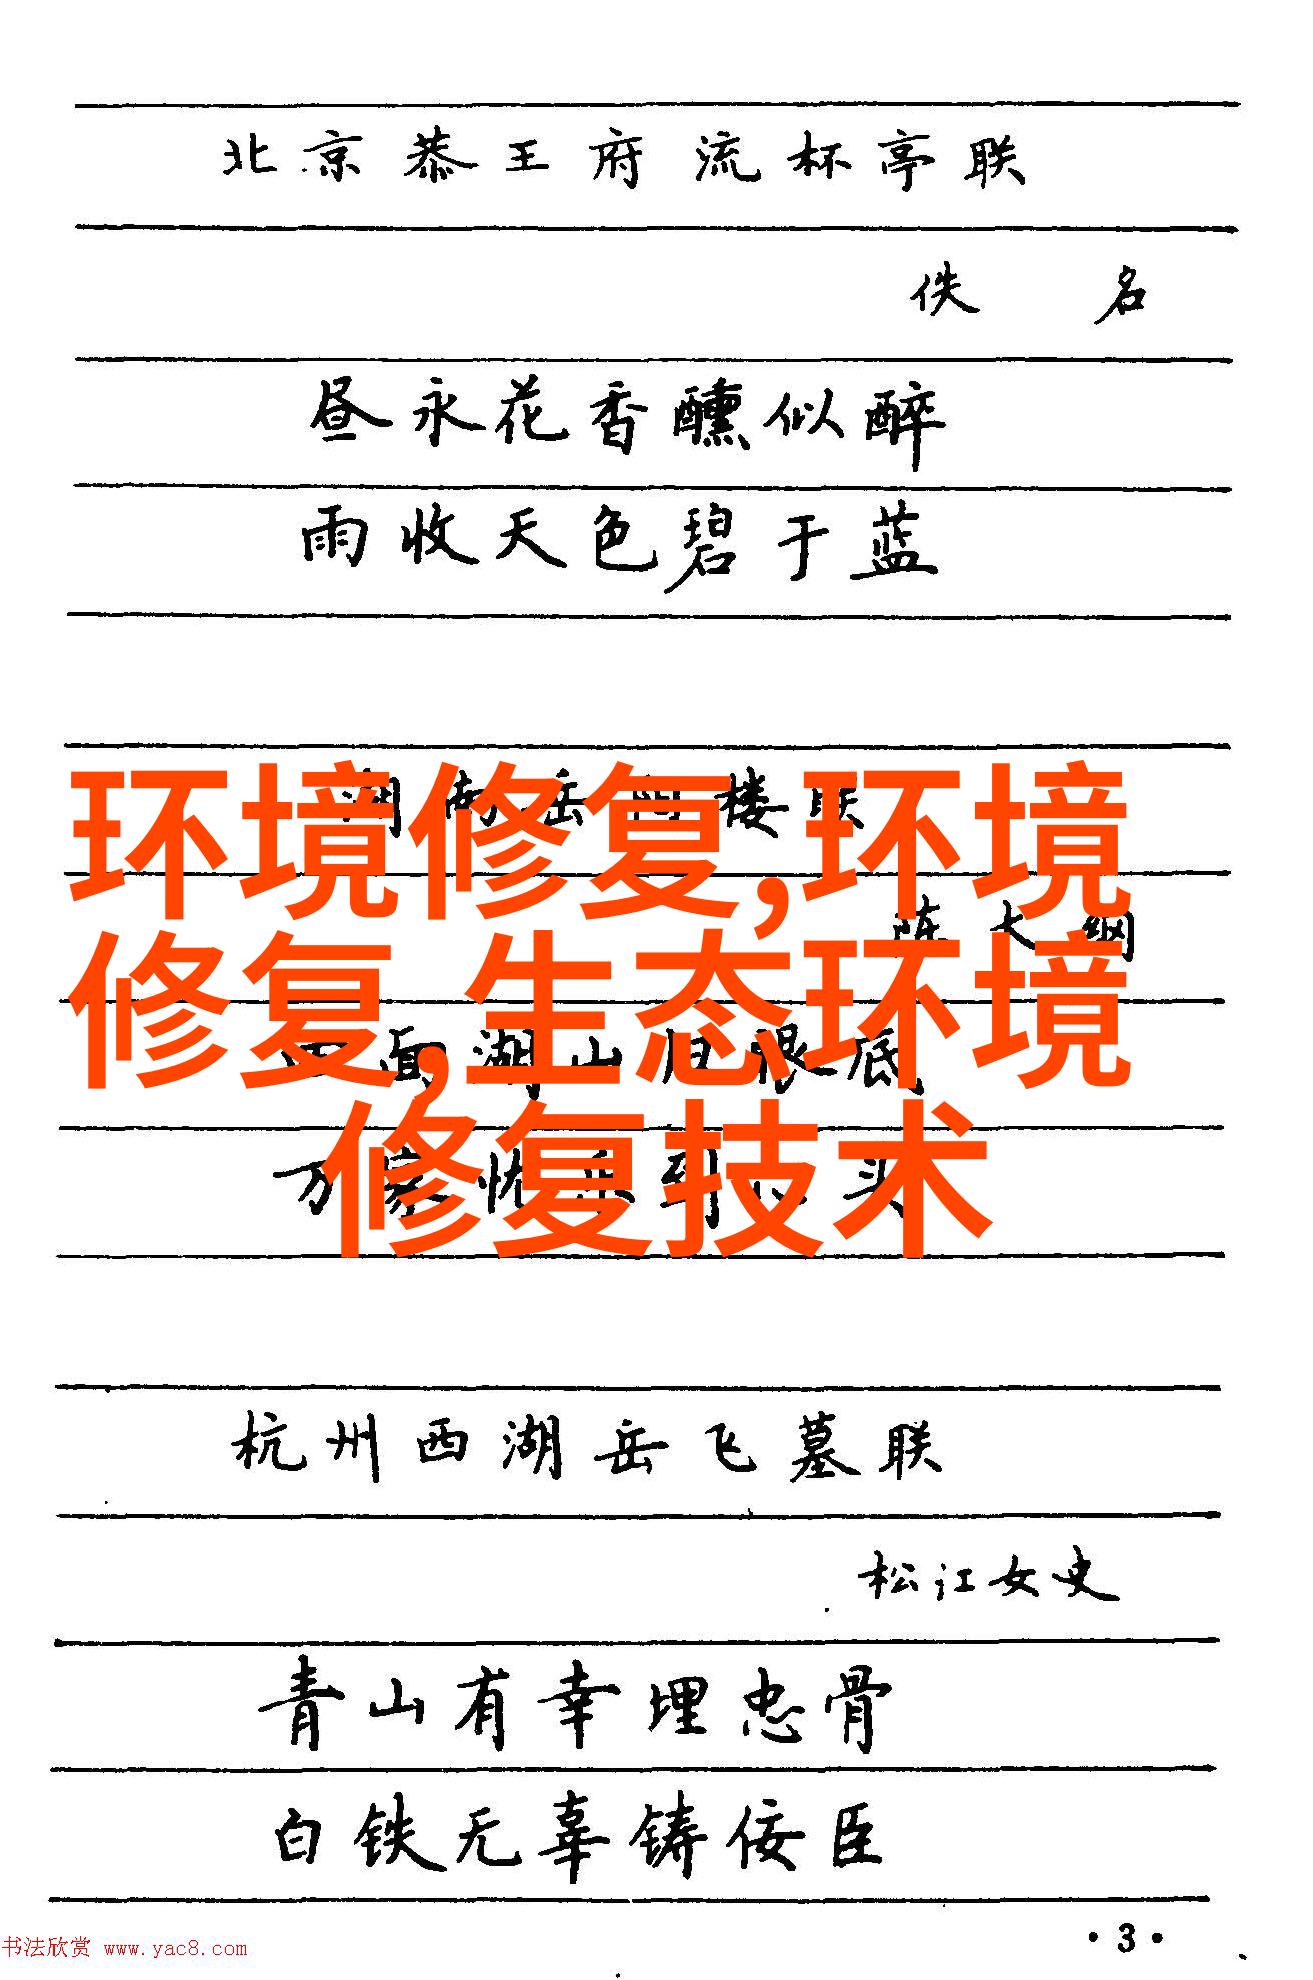 北京恭王府流杯亭联
佚名
昼永花香醺似醉
雨收天色碧于蓝
湖南岳阳楼联
环境修复,环境
陈大纲
修复,生态环境
四面湖山归眼底
修复技术
万家忧乐到心头
杭州西湖岳飞墓联
松江女史
青山有幸埋忠骨
白铁无辜铸佞臣
·3·
书法欣赏 www.yac8.com